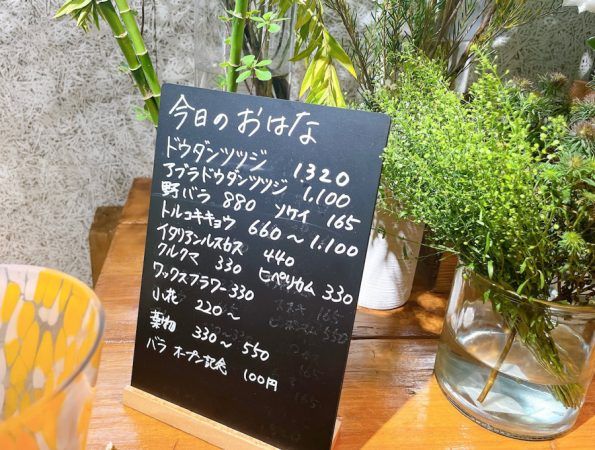 今日のおはな
ドウダンツツジ 1.320
アブラドウダンツツジ 1,100
野バラ 880 ソケイ 165
トルコキキョウ 660～1.100
イタリアンルスカス 440
クルクマ 330 ヒペリカム 330
ワックスフラワー 330
小花 220～
葉物 330～550
バラ オープン記念 100円